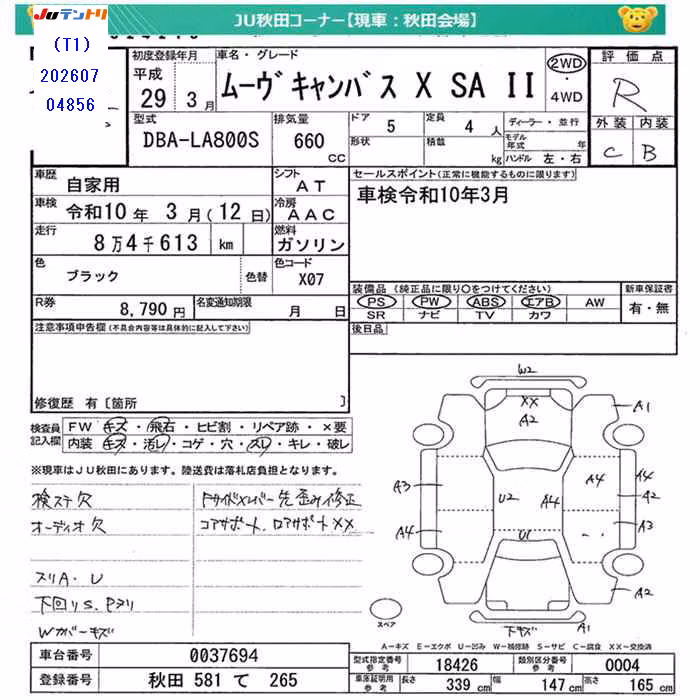 JUテントリ
JU秋田コーナー【現車：秋田会場】
(T1)
202607
04856
初度登録年月
平成
29 3 月
車名・グレード
ムーヴ キャンバス X SA II
2WD
・
4WD
評価点
R
外装 内装
C B
型式
DBA-LA800S
排気量
660
CC
ドア
5
形状
定員
4 人
積載
kg
ディーラー・並行
モデル年式 年
ハンドル 左・右
車歴
自家用
シフト
AT
車検
令和10 年 3 月 ( 12 日)
冷房
AAC
走行
8 万 4 千 613 km
燃料
ガソリン
色
ブラック
色替
色コード
X07
R券
8,790 円
名変通知期限
月 日
セールスポイント(正常に機能するものに限ります)
車検令和10年3月
装備品 (純正品に限り○をつけてください)
PS PW ABS エアB AW
SR ナビ TV カワ
新車保証書
有・無
後日品
注意事項申告欄(不具合内容等は具体的に記入して下さい)
修復歴 有 [箇所 ]
検査員記入欄
FW キズ・飛石・ヒビ割・リペア跡・×要
内装 キズ・汚レ・コゲ・穴・スレ・キレ・破レ
※現車はJU秋田にあります。陸送費は落札店負担となります。
検ステ欠
オーディオ欠
スリA・U
下回りS.Pヌリ
Wカバーキズ
Fサイドメンバー先歪み修正
コアサポート. ロアサポートXX
W2
XX
A2
A1
A3
U2
A4
A4
A4
A2
A4
U1
A3
A2
下キズ
A1
スペア
A－キズ E－エクボ U－凹み W－補修跡 S－サビ C－腐食 XX－交換済
車台番号
0037694
登録番号
秋田 581 て 265
型式指定番号
参考
18426
類別区分番号
参考
0004
車庫証明用
参考
長さ
339 cm
幅
147 cm
高さ
165 cm